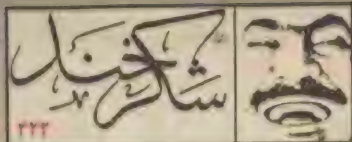 شکرخند
۲۲۲